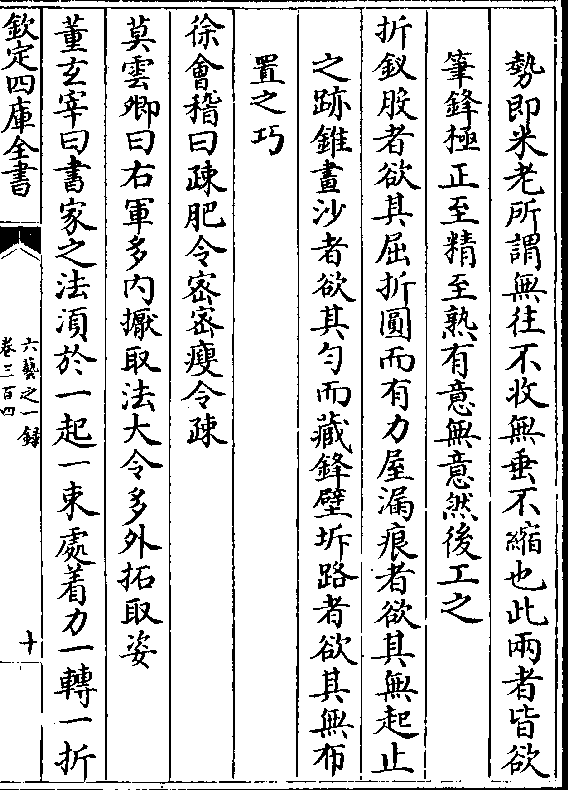 勢即米老所謂無往不收無垂不縮也此兩者皆欲
筆鋒極正至精至熟有意無意然後工之
折釵股者欲其屈折圓而有力屋漏痕者欲其無起止
之跡錐畫沙者欲其勻而藏鋒壁坼路者欲其無布
置之巧
徐會稽曰疎肥令密密瘦令疎
莫雲卿曰右軍多内擫取法大令多外拓取姿
董玄宰曰書家之法須於一起一束處着力一轉一折
欽定四庫全書
六藝之一録
卷三百四
十